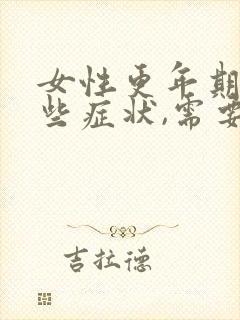 女性更年期
些症状,需要
吉拉德